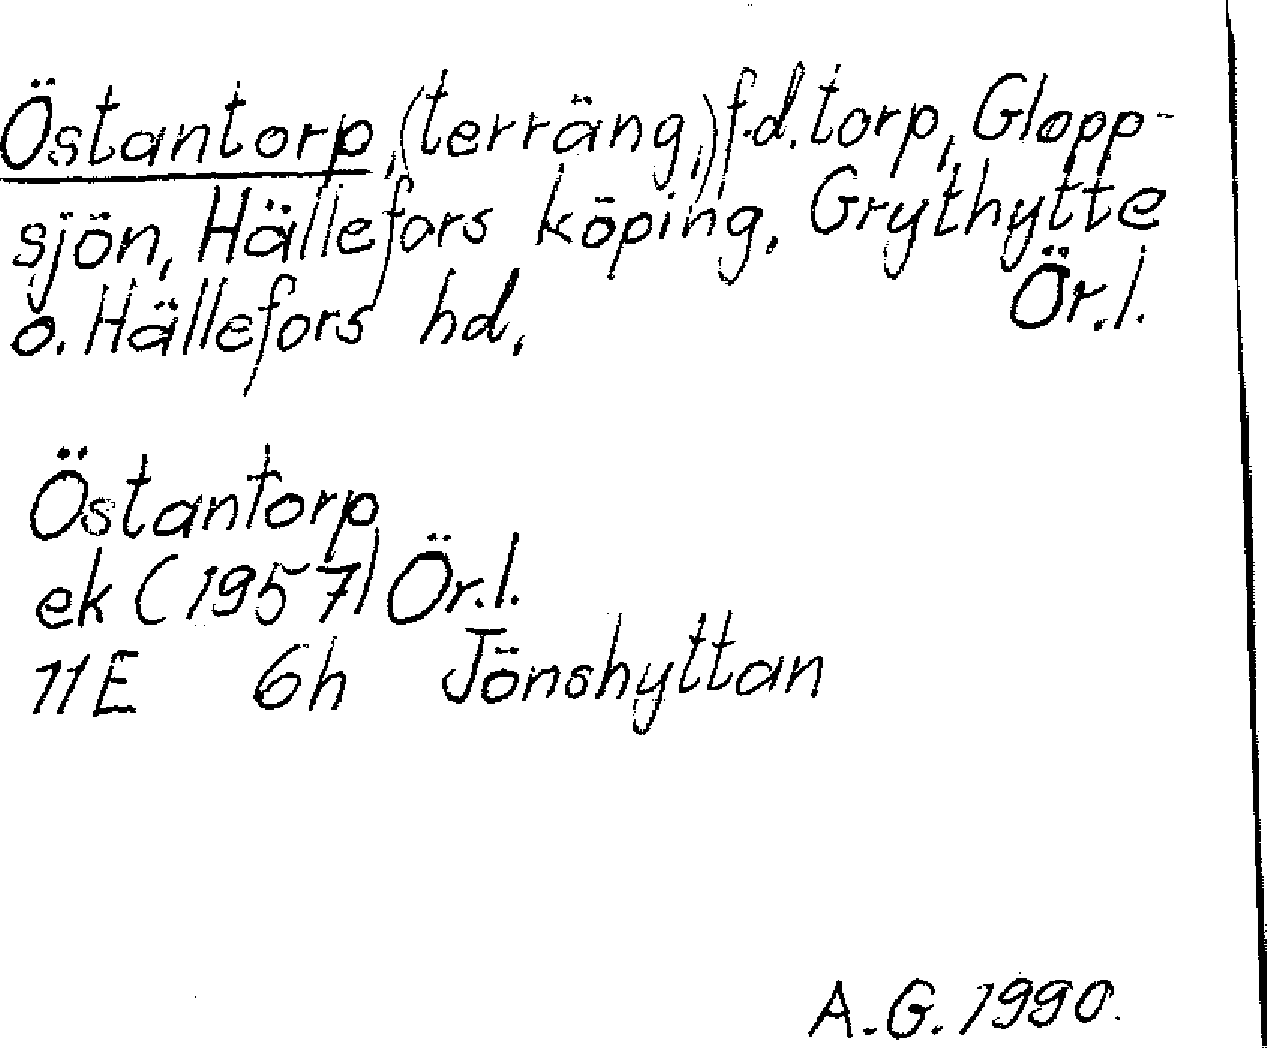 Östantorp, (terräng,) f.d. torp, Glopp-
sjön, Hällefors köping, Grythytte
o. Hällefors hd, Ör.l.
Östantorp
ek (1957) Ör.l.
11E 6h Jönshyttan
A.G. 1990.